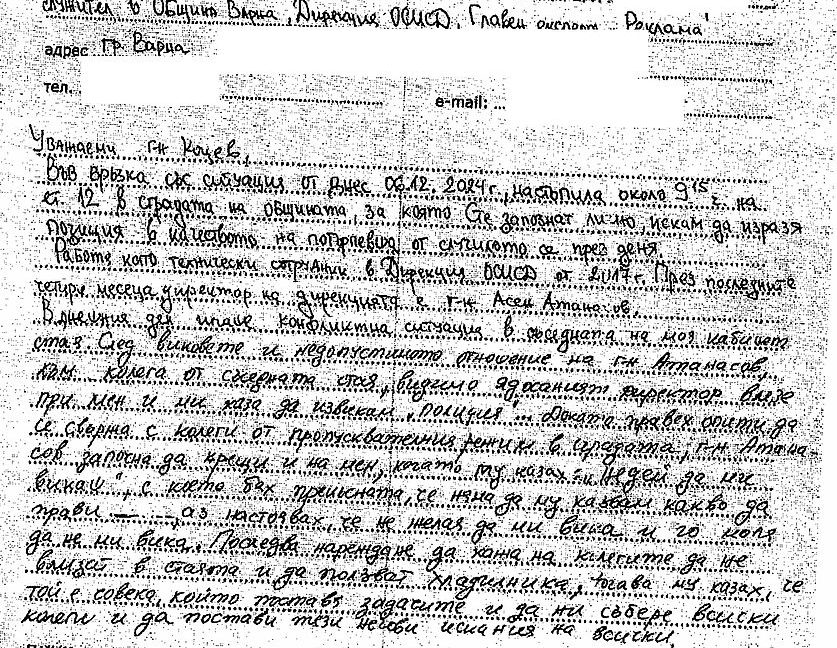 служител в Община Варна, Дирекция ОСИСД, Главен експерт „Реклама"
адрес гр. Варна
тел.
e-mail: ...
Уважаеми г-н Коцев,
Във връзка със ситуация от днес 06.12.2024 г., настъпила около 9¹⁵ ч. на
ет. 12 в сградата на общината, за която сте запознат лично, искам да изразя
позиция в качеството на потърпевша от случилото се през деня.
Работя като технически сътрудник в Дирекция ОСИСД от 2017 г. През последните
четири месеца директор на дирекцията е г-н Асен Атанасов.
В днешния ден имаше конфликтна ситуация в съседната на моя кабинет
стая. След виковете и недопустимото отношение на г-н Атанасов,
към колега от съседната стая, видимо ядосаният директор влезе
при мен и ми каза да извикам „полиция"... Докато правех опити да
се свържа с колеги от пропускателния режим в сградата, г-н Атана-
сов започна да крещи и на мен, когато му казах: „Недей да ми
викаш", с което бях прекъсната, че няма да му казвам какво да
прави — —, аз настоявах, че не желая да ми вика и го моля
да не ми вика. Последва нареждане да кажа на колегите да не
влизат в стаята и да ползват хладилника, тогава му казах, че
той е човека, който поставя задачите и да ни събере всички
колеги и да постави тези негови искания на всички.